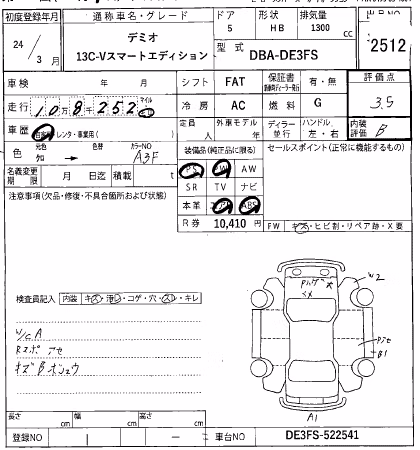 初度登録年月 通称車名・グレード ドア 形状 排気量
24 / 3 月 デミオ 5 HB 1300 cc
13C-Vスマートエディション 型式 DBA-DE3FS 2512
車検 年 月 シフト FAT 保証書 有・無 評価点
走行 10万8千252 マイル km 冷房 AC 燃料 G 3.5
車歴 自家用 レンタ・事業用( ) 定員 人 外車モデル 年 ディーラー 並行 ハンドル 左・右 内装評価 B
色 元色 色替 カラーNO A3F 装備品(純正品に限る) セールスポイント(正常に機能するもの)
知 → PS PW AW
名義変更期限 月 日迄 積載 t SR TV ナビ
注意事項(欠品・修復・不具合箇所および状態) 本革 エアB ABS
R券 10,410 円 FW キズ・ヒビ割・リペア跡・X要
W2
検査員記入 内装 キズ・汚レ・コゲ・穴・スレ・キレ
W/C A
Rスポ アセ
キズ B
B1
A1
長さ cm 幅 cm 高さ cm
登録NO 車台NO DE3FS-522541